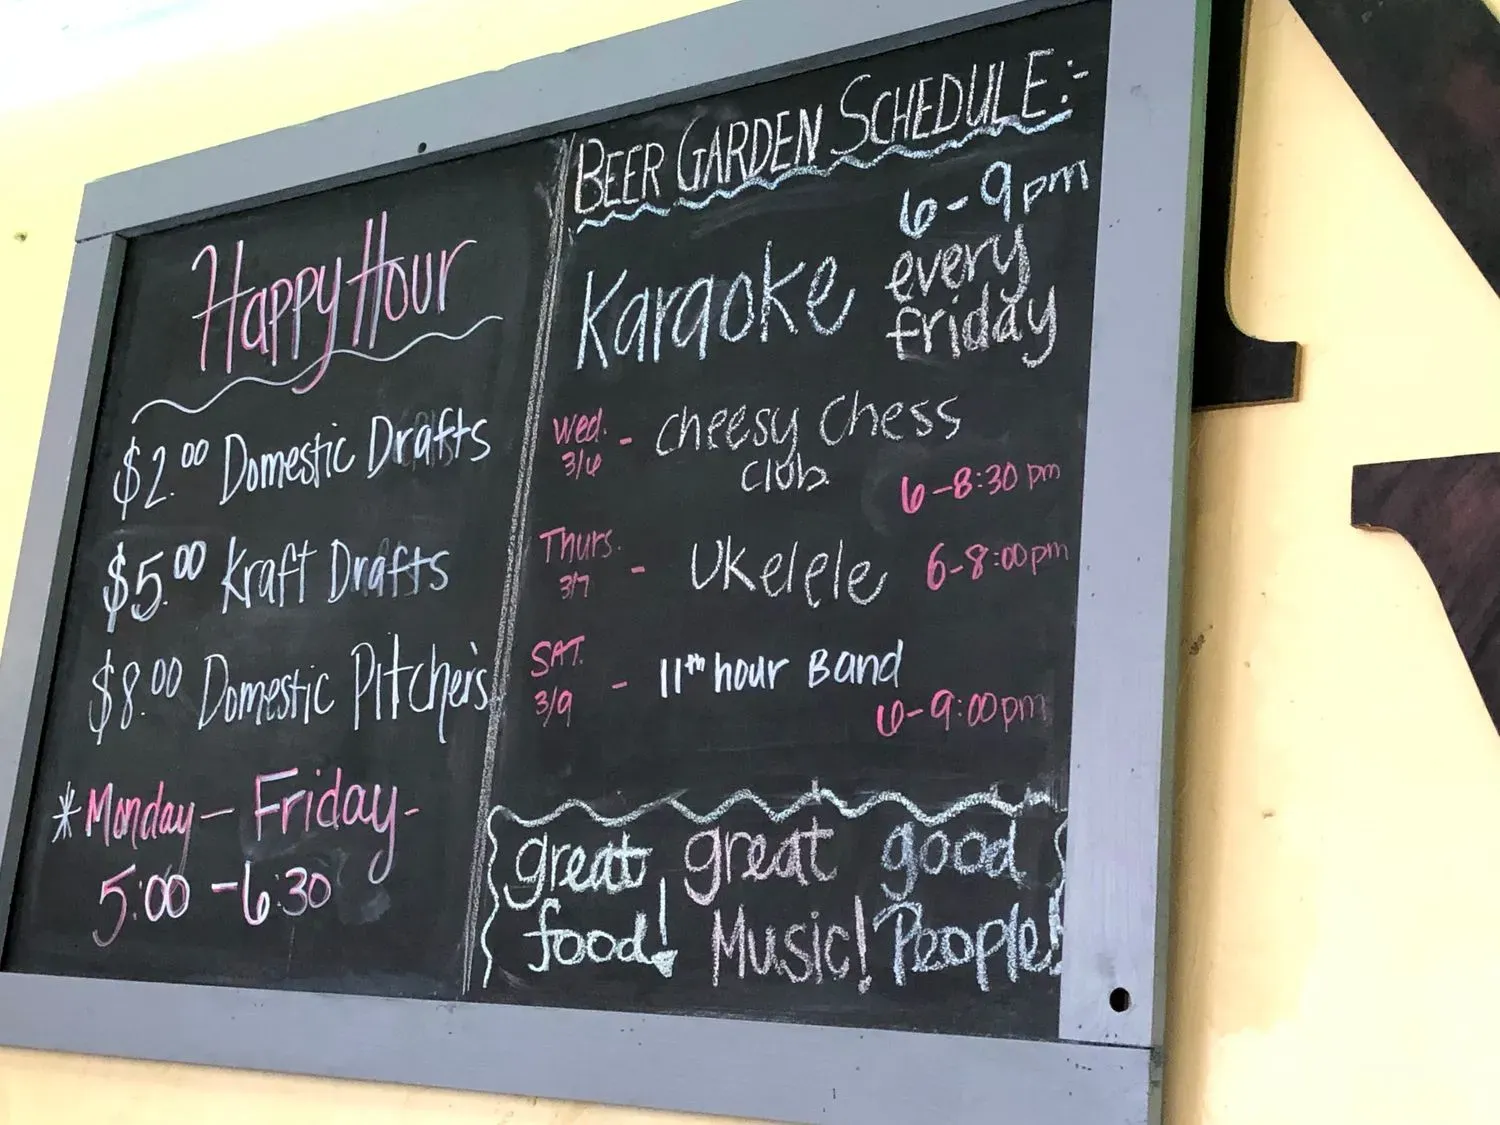 Happy Hour
$2.00 Domestic Drafts
$5.00 Kraft Drafts
$8.00 Domestic Pitchers
* Monday - Friday -
5:00 - 6:30
BEER GARDEN SCHEDULE:-
Karaoke 6-9pm
every
friday
Wed. 3/6 - Cheesy Chess
Club 6-8:30 pm
Thurs. 3/7 - Ukelele 6-8:00pm
SAT. 3/9 - 11th hour Band
6-9:00pm
great great good
food! Music! People!